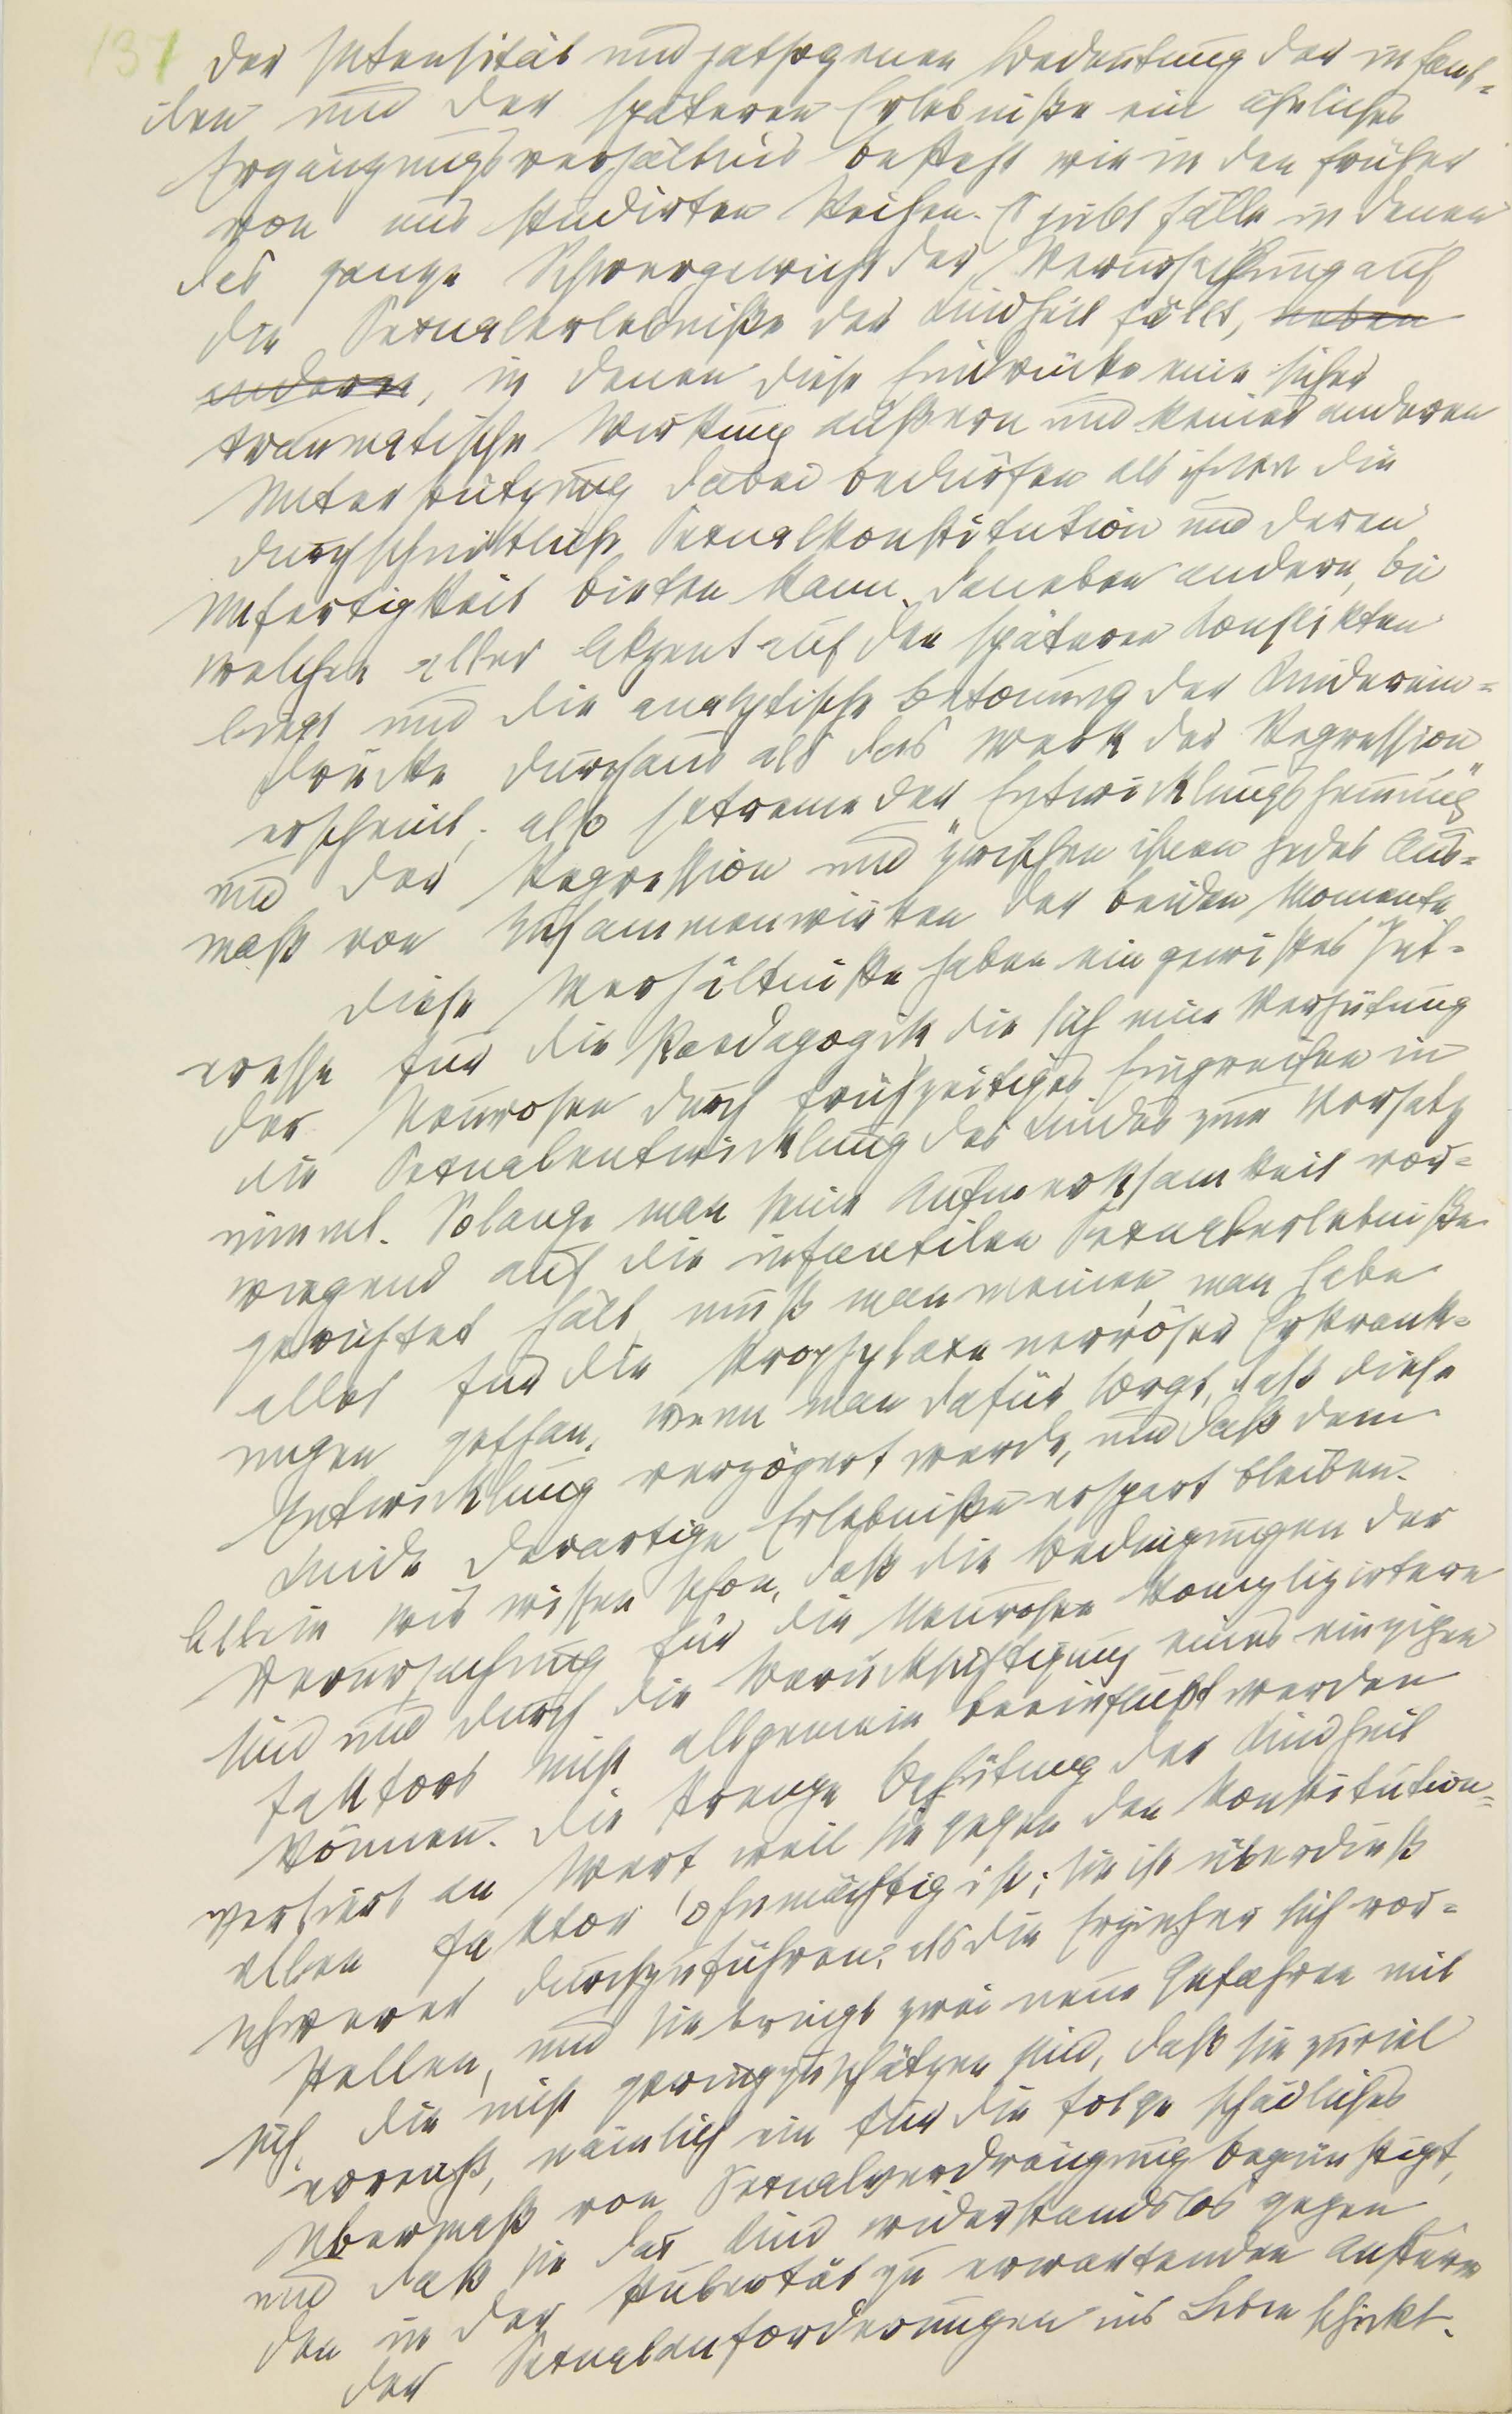 137
der Intensität und pathogenen Bedeutung der infant=
ilen und der späteren Erlebniße ein ähnliches
Ergänzungsverhältnis besteht wie in den früher
von uns studirten Reihen. Es gibt Fälle in denen
das ganze Schwergewicht der Verursachung auf
die Sexualerlebniße der Kindheit fällt, neben
anderen, in denen diese Eindrücke eine sicher
traumatische Wirkung äußern und keiner anderen
Unterstützung dabei bedürfen als ihnen die
durchschnittliche Sexualkonstitution und deren
Unfertigkeit bieten kann. Daneben andere, bei
welchen aller Akzent auf den späteren Konflikten
liegt und die analytische Betonung der Kinderein=
drücke durchaus als das Werk der Regression
erscheint; also Extreme der „Entwicklungshemmung"
und der „Regression" und zwischen ihnen jedes Aus=
maß von Zusammenwirken der beiden Momente.
Diese Verhältniße haben ein gewißes Int=
eresse für die Paedagogik die sich eine Verhütung
der Neurosen durch frühzeitiges Eingreifen in
die Sexualentwicklung des Kindes zum Vorsatz
nimmt. Solange man seine Aufmerksamkeit vor=
wiegend auf die infantilen Sexualerlebniße
gerichtet hält, muß man meinen, man habe
alles für die Prophylaxe nervöser Erkrank=
ungen gethan, wenn man dafür sorgt, daß diese
Entwicklung verzögert werde, und daß dem
Kinde derartige Erlebniße erspart bleiben.
Allein wir wissen schon, daß die Bedingungen der
Verursachung für die Neurosen komplizirtere
sind und durch die Berücksichtigung eines einzigen
Faktors nicht allgemein beeinflußt werden
können. Die strenge Behütung der Kindheit
verliert an Wert, weil sie gegen den konstitution=
ellen Faktor ohnmächtig ist; sie ist überdieß
schwerer durchzuführen, als die Erzieher sich vor=
stellen, und sie bringt zwei neue Gefahren mit
sich, die nicht geringzuschätzen sind, daß sie zuviel
erreicht, nämlich ein für die Folge schädliches
Übermaß von Sexualverdrängung begünstigt,
und daß sie das Kind widerstandslos gegen
den in der Pubertät zu erwartenden Ansturm
der Sexualanforderungen ins Leben schickt.